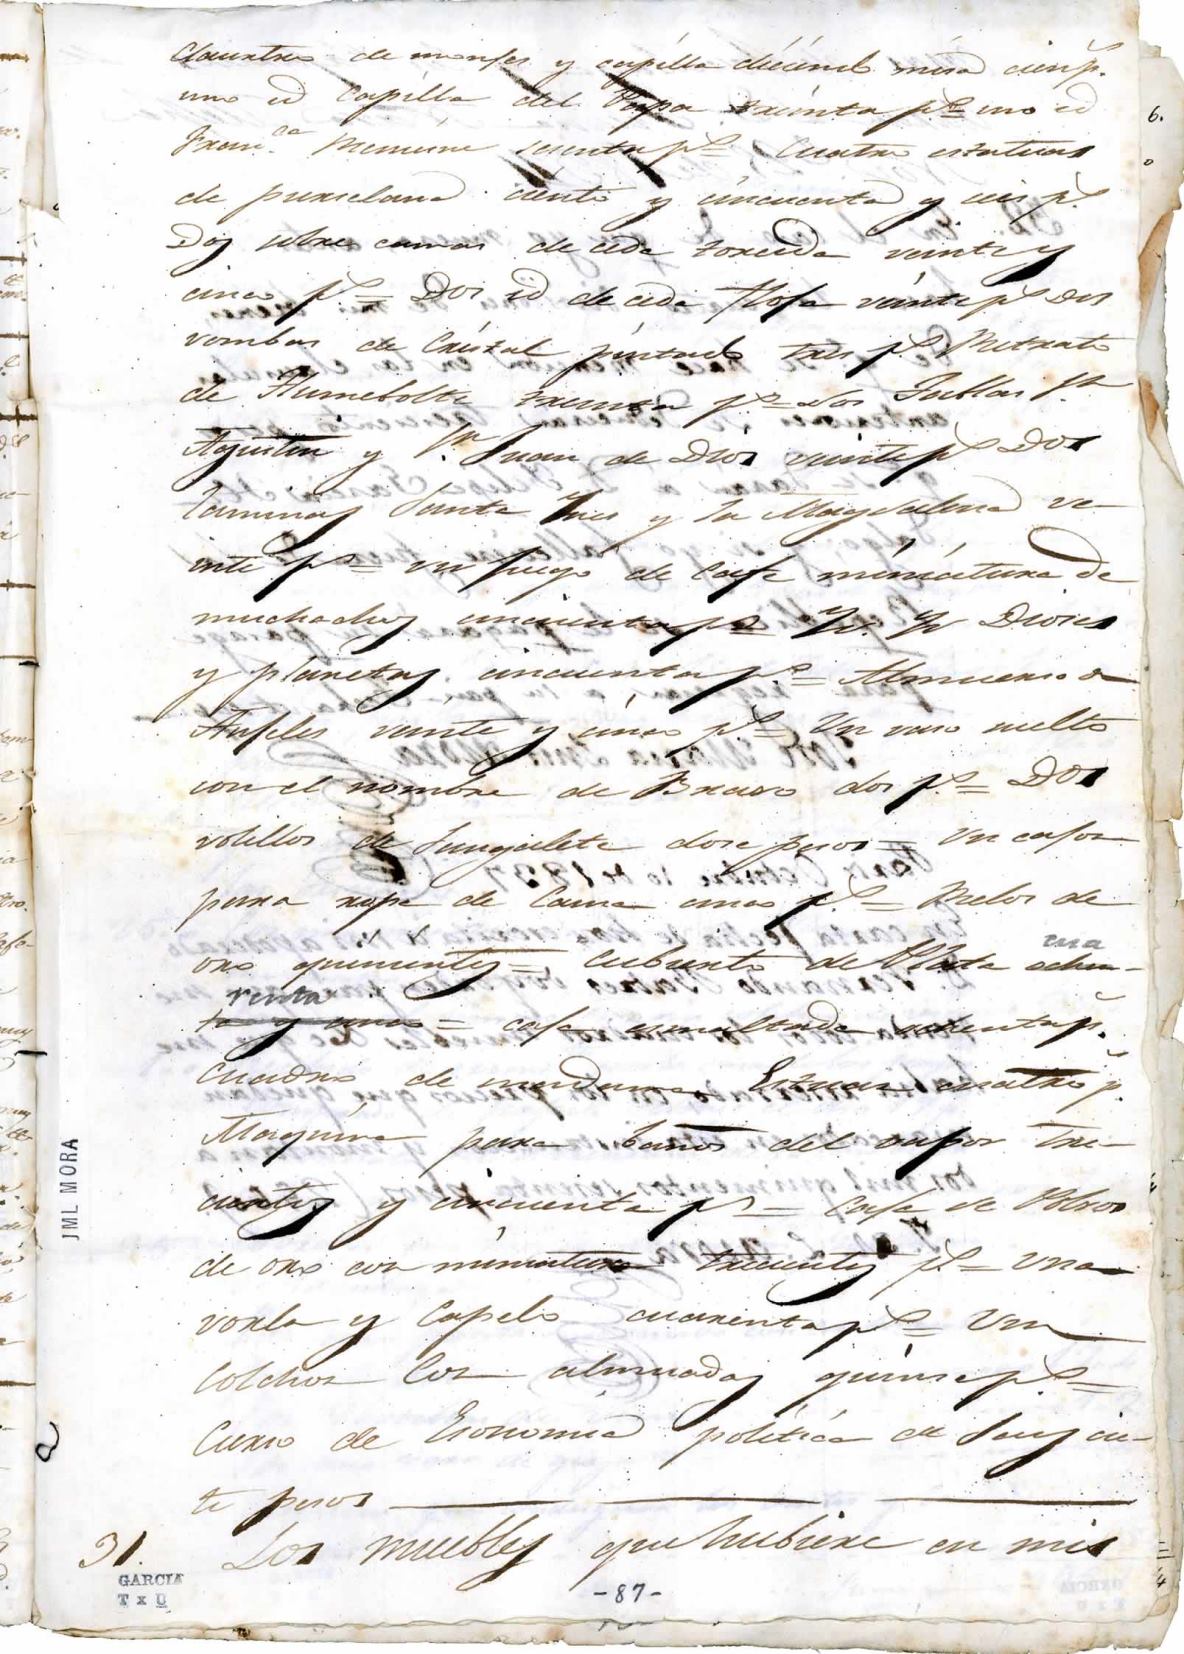 Claustro de monjes y capilla diciendo misa cien p.^s
uno id Capilla del Papa treinta p.^s = uno id
Fran.^ca sesenta p.^s = Cuatro estatuas
de purselana ciento y cincuenta y seis p.^s
Dos sobre camas de ceda torcida veinte y
cinco p.^s = Dos id de ceda floja veinte p.^s Dos
vombas de Cristal pintado tres p.^s Retrato
de Humbolte treinta p.^s = Dos Tablas S.^n
Agustin y S.^n Juan de Dios veinte p.^s Dos
Laminas Santa Ynes y la Magdalena ve-
inte p.^s = Un juego de Cafe miniatura de
muchachos cincuenta p.^s = Yd. Yd Dioses
y planetas cincuenta p.^s = Almuerzo de
Naples veinte y cinco p.^s = Un vaso suelto
con el nombre de Bravo dos p.^s = Dos
rolillos de dose pesos = Un cajon
para ropa de Cama cinco p.^s = Relos de
oro quinientos = Cubierto de Plata ochen-
cua
renta
ta y cinco = caja esmaltada p.^s
Cuadro de madama cuatro p.^s
Maquina para baños del vapor tre-
cientos y cincuenta p.^s = Caja de Polvos
de oro con miniatura trecientos p.^s = Una
vorla y Capelo cuarenta p.^s = Un
Colchon Con almuadas quinse p.^s =
Curso de Economia politica de Say sie-
te pesos
31. Los muebles que hubiere en mis
JML MORA
GARCIA
T x U
-87-